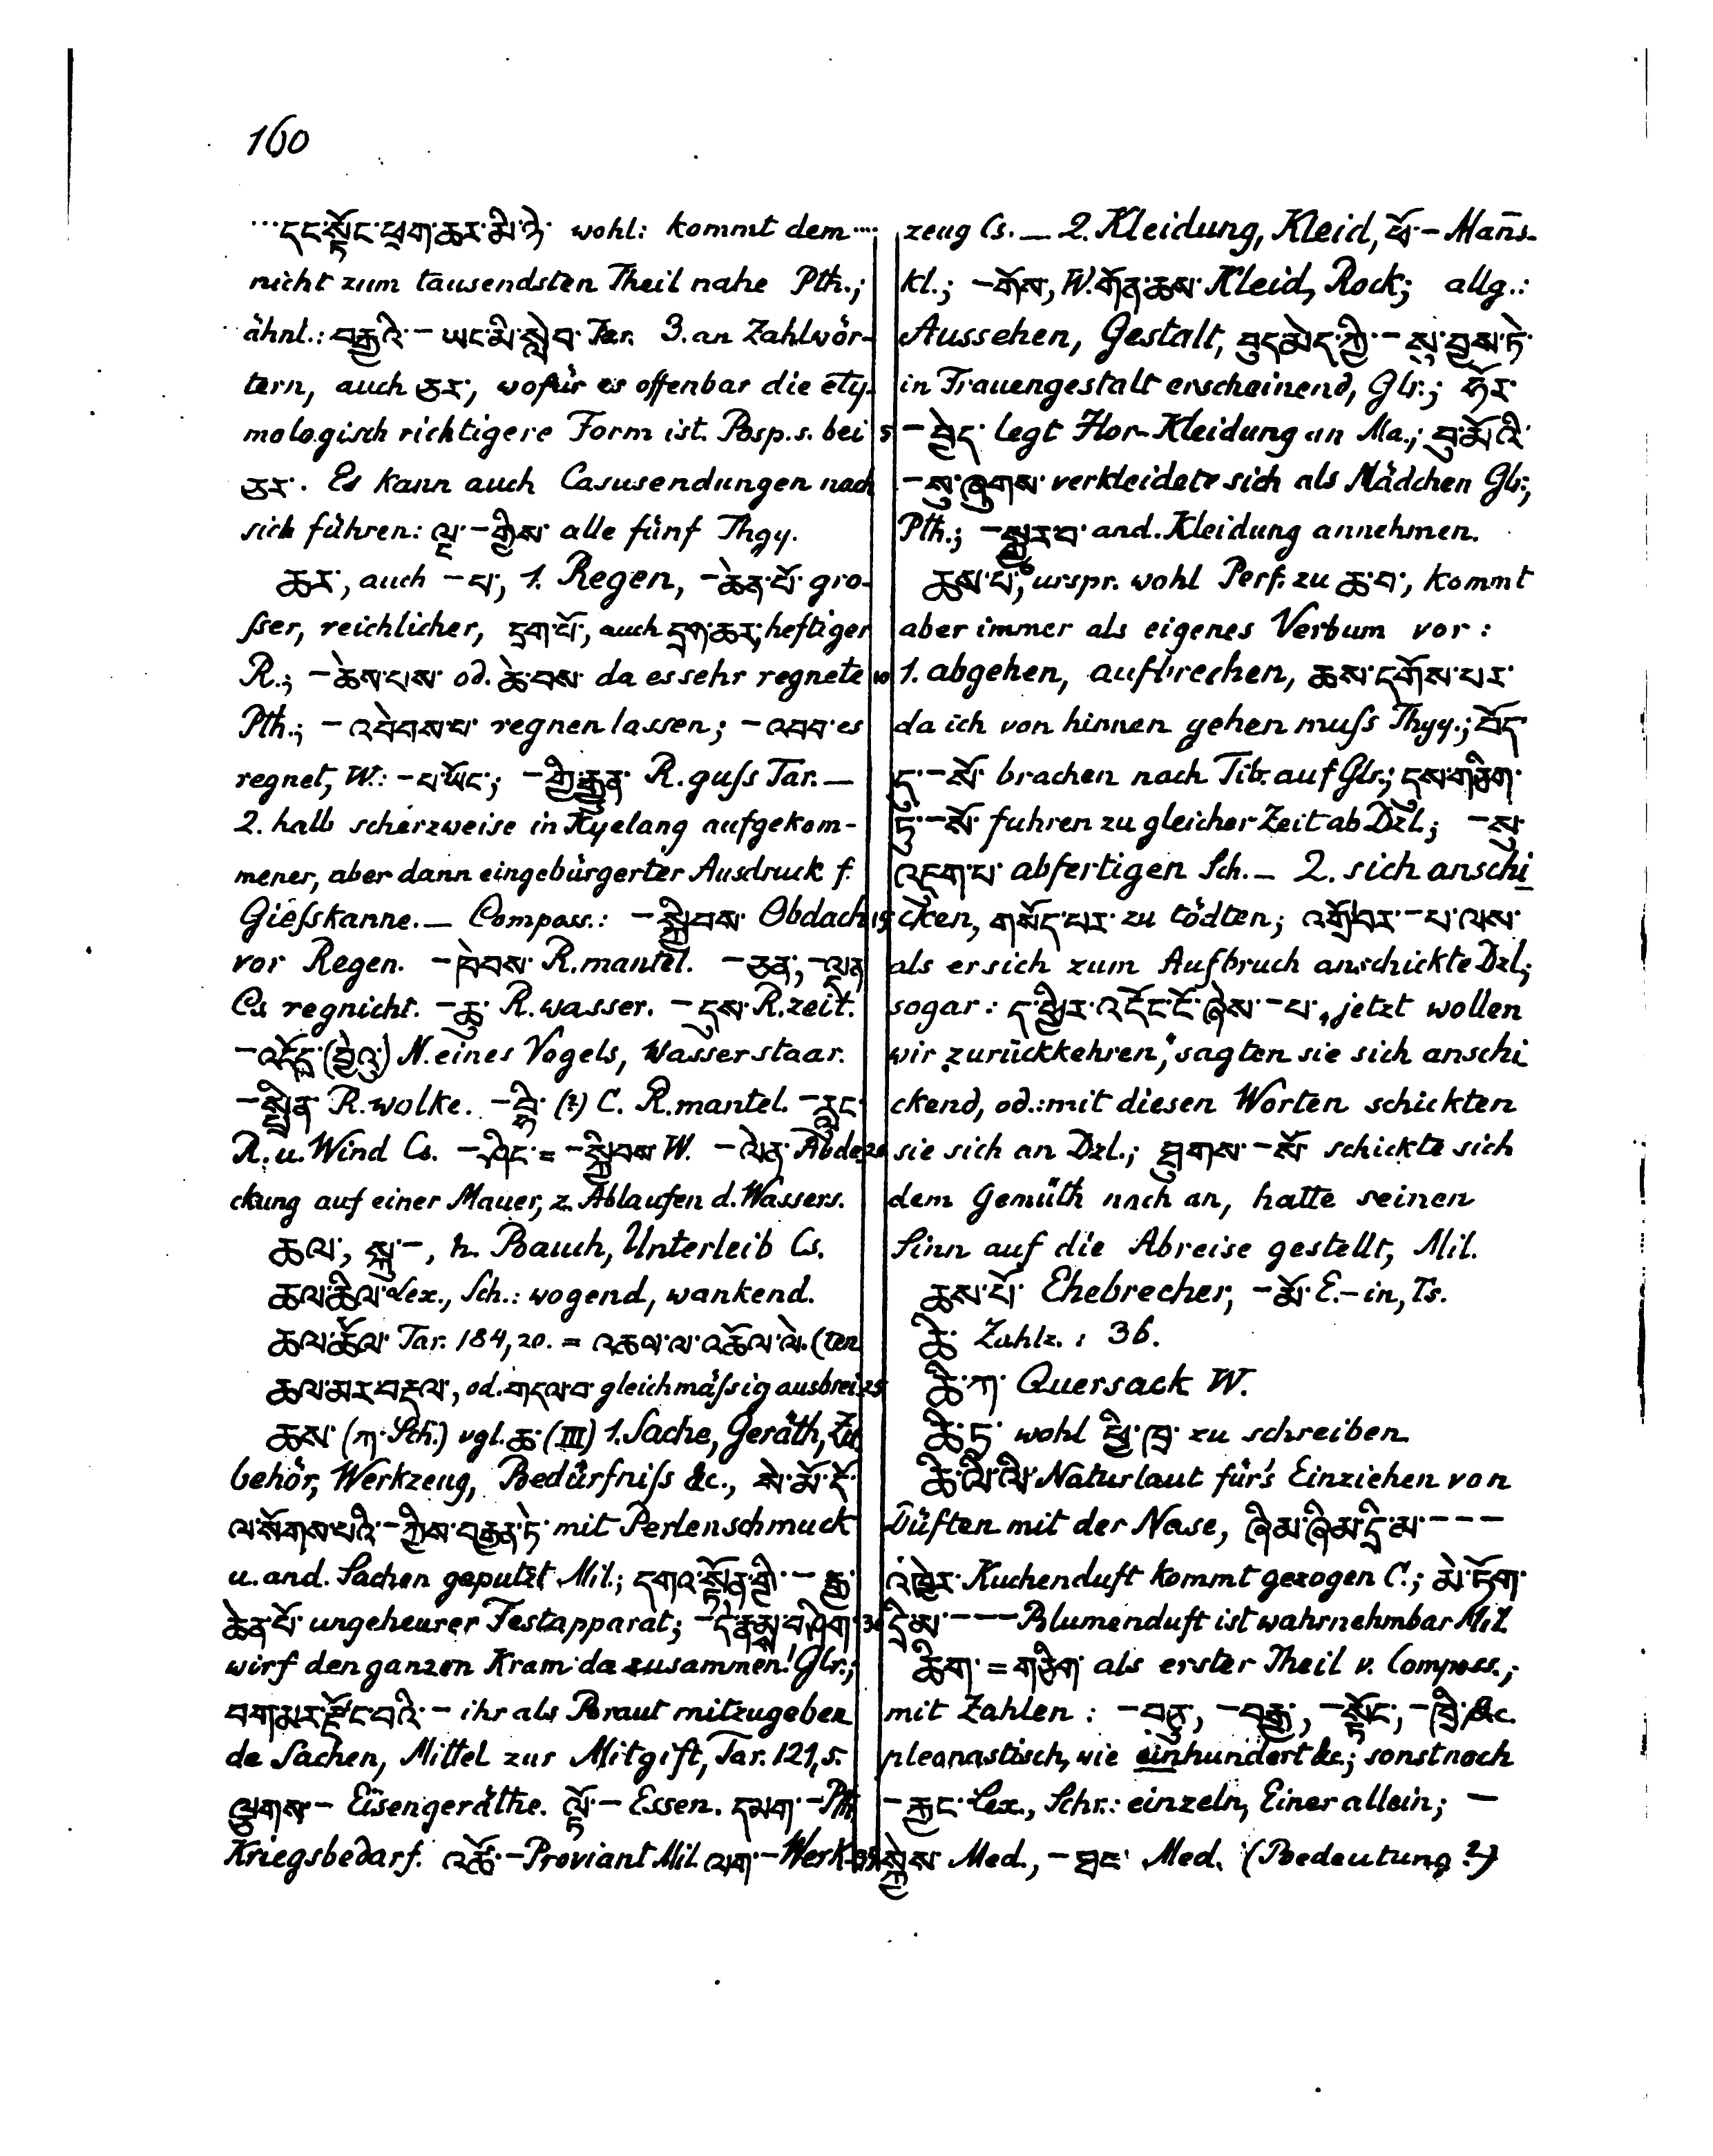 160
...དང་སྟོང་ཕྲག་ཆར་མི་ཉེ་ wohl: kommt dem....
nicht zum tausendsten Theil nahe Pth.;
ähnl.: བརྒྱའི་ – ཡང་མི་སླེབ་ Tar. 3. an Zahlwör-
tern, auch ཅར་, wofür es offenbar die ety-
mologisch richtigere Form ist. Posp. s. bei
ཅར་. Es kann auch Casusendungen nach
sich führen: ལྔ་ – གྱིས་ alle fünf Thgy.
ཆར་, auch – པ་, 1. Regen, – ཆེན་པོ་ gro-
sser, reichlicher, དྲག་པོ་, auch དྲག་ཆར་, heftiger
R.; – ཆེས་པས་ od. ཆེ་བས་ da es sehr regnete
Pth.; – འབེབས་པ་ regnen lassen; – འབབ་ es
regnet, W.: – པ་ཡོང་; – གྱི་རྒྱུན་ R.guſs Tar. —
2. halb scherzweise in Kyelang aufgekom-
mener, aber dann eingebürgerter Ausdruck f.
Gieſskanne. — Compos.: – སྐྱིབས་ Obdach
vor Regen. – ཁེབས་ R.mantel. – ཅན་, – ལྡན་
Cs. regnicht. – ཆུ་ R.wasser. – དུས་ R.zeit.
– འདོད་ (བྱེའུ་) N. eines Vogels, Wasserstaar.
– སྤྲིན་ R.wolke. (?) C. R.mantel. – རླུང་
R. u. Wind Cs. – ཤིང་ = – སྐྱིབས་ W. – ལེན་ Abde-
ckung auf einer Mauer, z. Ablaufen d. Wassers.
ཆལ་, སྐུ་ –, h. Bauch, Unterleib Cs.
ཆལ་ཆིལ་ Lex., Sch.: wogend, wankend.
ཆལ་ཆོལ་ Tar. 184,20. = འཆལ་ལ་འཆོལ་ལེ. (ten
ཆལ་མར་བརྡལ་, od. གདལ་བ་ gleichmäſsig ausbrei-
ཆས་ (ཀ་ Sch.) vgl. ཆ་ (III) 1. Sache, Geräth, Zu-
behör, Werkzeug, Bedürfniſs &c., སེ་མོ་དོ་
ལ་སོགས་པའི་ – ཀྱིས་བརྒྱན་ཏེ་ mit Perlenschmuck
u. and. Sachen geputzt Mil.; དགའ་སྟོན་གྱི་ – རྒྱ་
ཆེན་པོ་ ungeheurer Festapparat; – དེ་རྣམས་
wirf den ganzen Kram da zusammen! Glr.;
བག་མར་རྫོང་བའི་ – ihr als Braut mitzugeben
de Sachen, Mittel zur Mitgift, Tar. 121,5.
ལྕགས་ – Eisengeräthe. ལྟོ་ – Essen. དམག་ – Pth.
Kriegsbedarf. འཚོ་ – Proviant Mil. ལག་ – Werk-
zeug Cs. — 2. Kleidung, Kleid, ཕོ་ – Mañs-
kl.; – གོས་, W. གོན་ཆས་ Kleid, Rock; allg.:
Aussehen, Gestalt, བུད་མེད་ཀྱི་ – སུ་བྱས་ཏེ་
in Frauengestalt erscheinend, Glr.; ཧོར་
– བྱེད་ legt Hor-Kleidung an Ma.; བུ་མོའི་
– སུ་ཞུགས་ verkleidete sich als Mädchen Glr.,
Pth.; – སྒྱུར་བ་ and. Kleidung annehmen.
ཆས་པ་, urspr. wohl Perf. zu ཆ་བ་, kommt
aber immer als eigenes Verbum vor:
1. abgehen, aufbrechen, ཆས་དགོས་པར་
da ich von hinnen gehen muſs Thgy.; བོད་
དུ་ – སོ་ brachen nach Tib. auf Glr.; དུས་གཅིག་
ཏུ་ – སོ་ fuhren zu gleicher Zeit ab Dzl.; – སུ་
འཇུག་པ་ abfertigen Sch. — 2. sich anschi
cken, གསོད་པར་ zu tödten; འགྲོ་བར་ – པ་ལས་
als er sich zum Aufbruch anschickte Dzl.;
sogar: ད་ཕྱིར་འདོང་ངོ་ཞེས་ – པ་ „jetzt wollen
wir zurückkehren," sagten sie sich anschi
ckend, od.: mit diesen Worten schickten
sie sich an Dzl.; ཐུགས་ – སོ་ schickte sich
dem Gemüth nach an, hatte seinen
Sinn auf die Abreise gestellt, Mil.
ཆས་པོ་ Ehebrecher, – མོ་ E.-in, Ts.
ཆི་ Zahlz.: 36.
ཆི་ཀ་ Quersack W.
ཆི་ཏ་ wohl ཕྱི་ཁྲ་ zu schreiben.
ཆི་ལི་ལི་ Naturlaut für's Einziehen von
Düften mit der Nase, ཞིམ་ཞིམ་དྲི་མ་ – – –
འཁྱེར་ Kuchenduft kommt gezogen C.; མེ་ཏོག་
དྲི་མ་ – – – Blumenduft ist wahrnehmbar Mil.
ཆིག་ = གཅིག་ als erster Theil v. Compos.;
mit Zahlen: – བཅུ་, – བརྒྱ་, – སྟོང་, – ཁྲི་ &c.
pleonastisch, wie einhundert &c.; sonst noch
– རྐྱང་ Lex., Schr.: einzeln, Einer allein; –
སྐྱེས་ Med., – ཐང་ Med. (Bedeutung?)